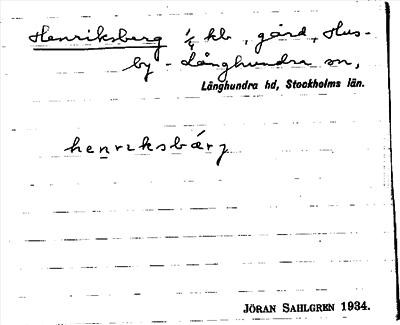 Henriksberg 1/4 kb, gård, Hus-
by - Långhundra sn,
Långhundra hd, Stockholms län.
henrıksbárj
JÖRAN SAHLGREN 1934.